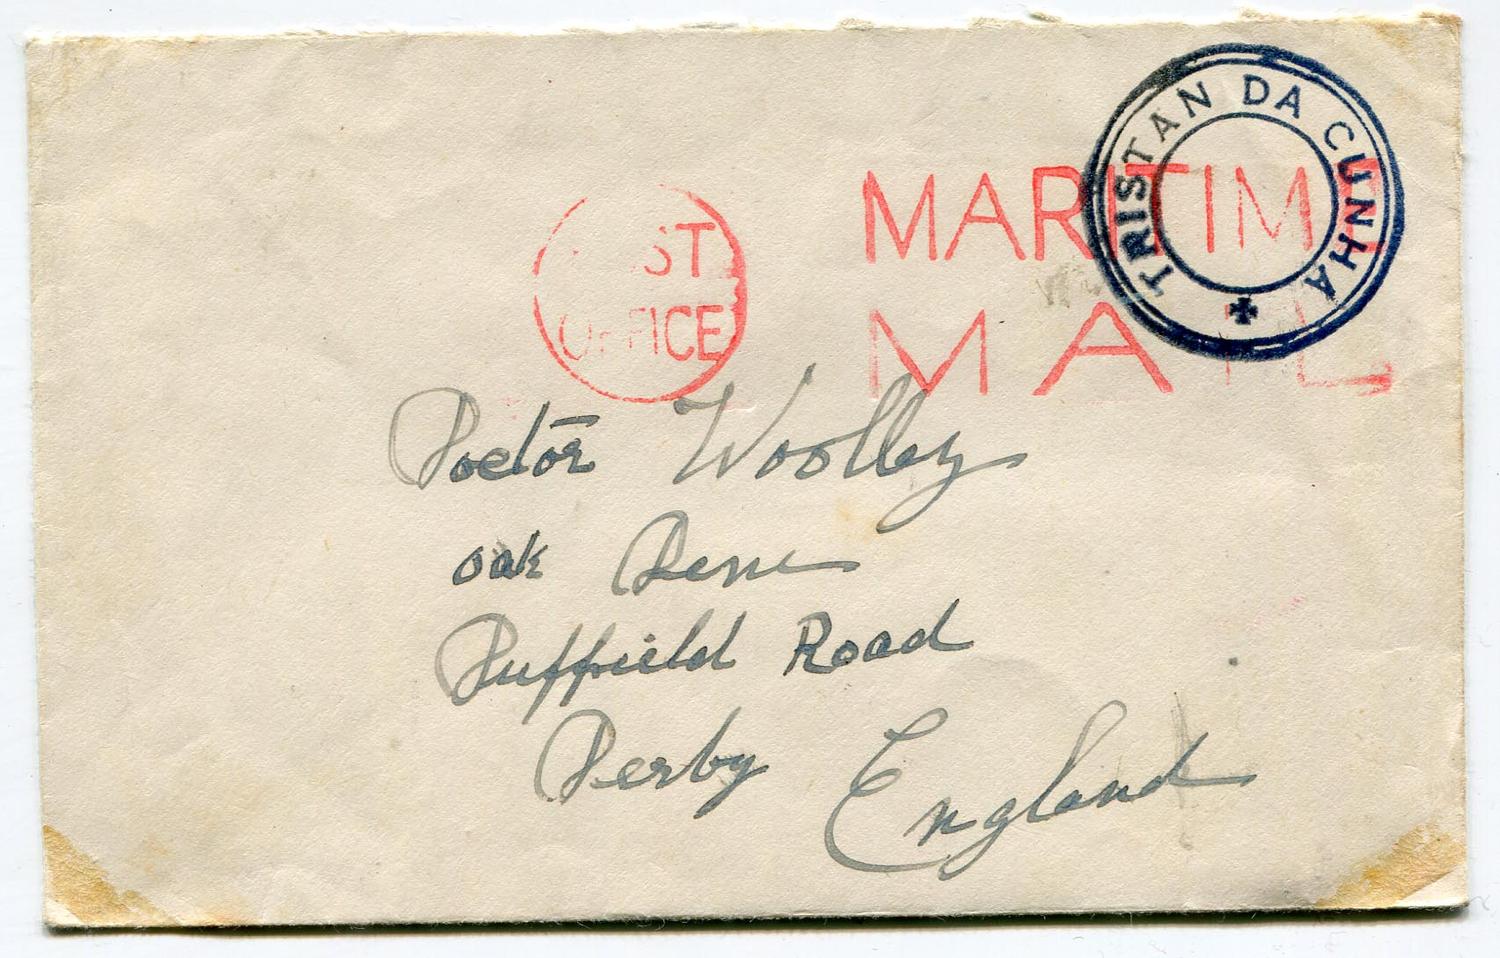 TRISTAN DA CUNHA
POST OFFICE
MARITIME
MAIL
Doctor Woolley
oak Dene
Duffield Road
Derby England